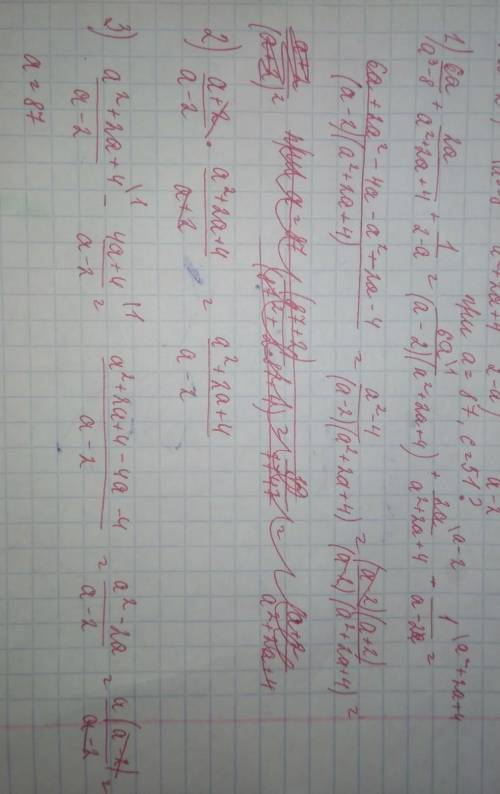 при a = 87, c = 51?
1) 6a/(a³-8) + 2a/(a²+2a+4) + 1/(2-a) = 6a\1/((a-2)(a²+2a+4)) + 2a\a-2/(a²+2a+4) - 1\a²+2a+4/(a-2) =
(6a+2a²-4a-a²+2a-4)/((a-2)(a²+2a+4)) = (a²-4)/((a-2)(a²+2a+4)) = ((a-2)(a+2))/((a-2)(a²+2a+4)) =
(a+2)/(a²+2a+4)
2) (a+2)/(a-2) · (a²+2a+4)/(a+2) = (a²+2a+4)/(a-2)
3) (a²+2a+4)\1/(a-2) - (4a+4)\1/(a-2) = (a²+2a+4-4a-4)/(a-2) = (a²-2a)/(a-2) = (a(a-2))/(a-2) =
a = 87